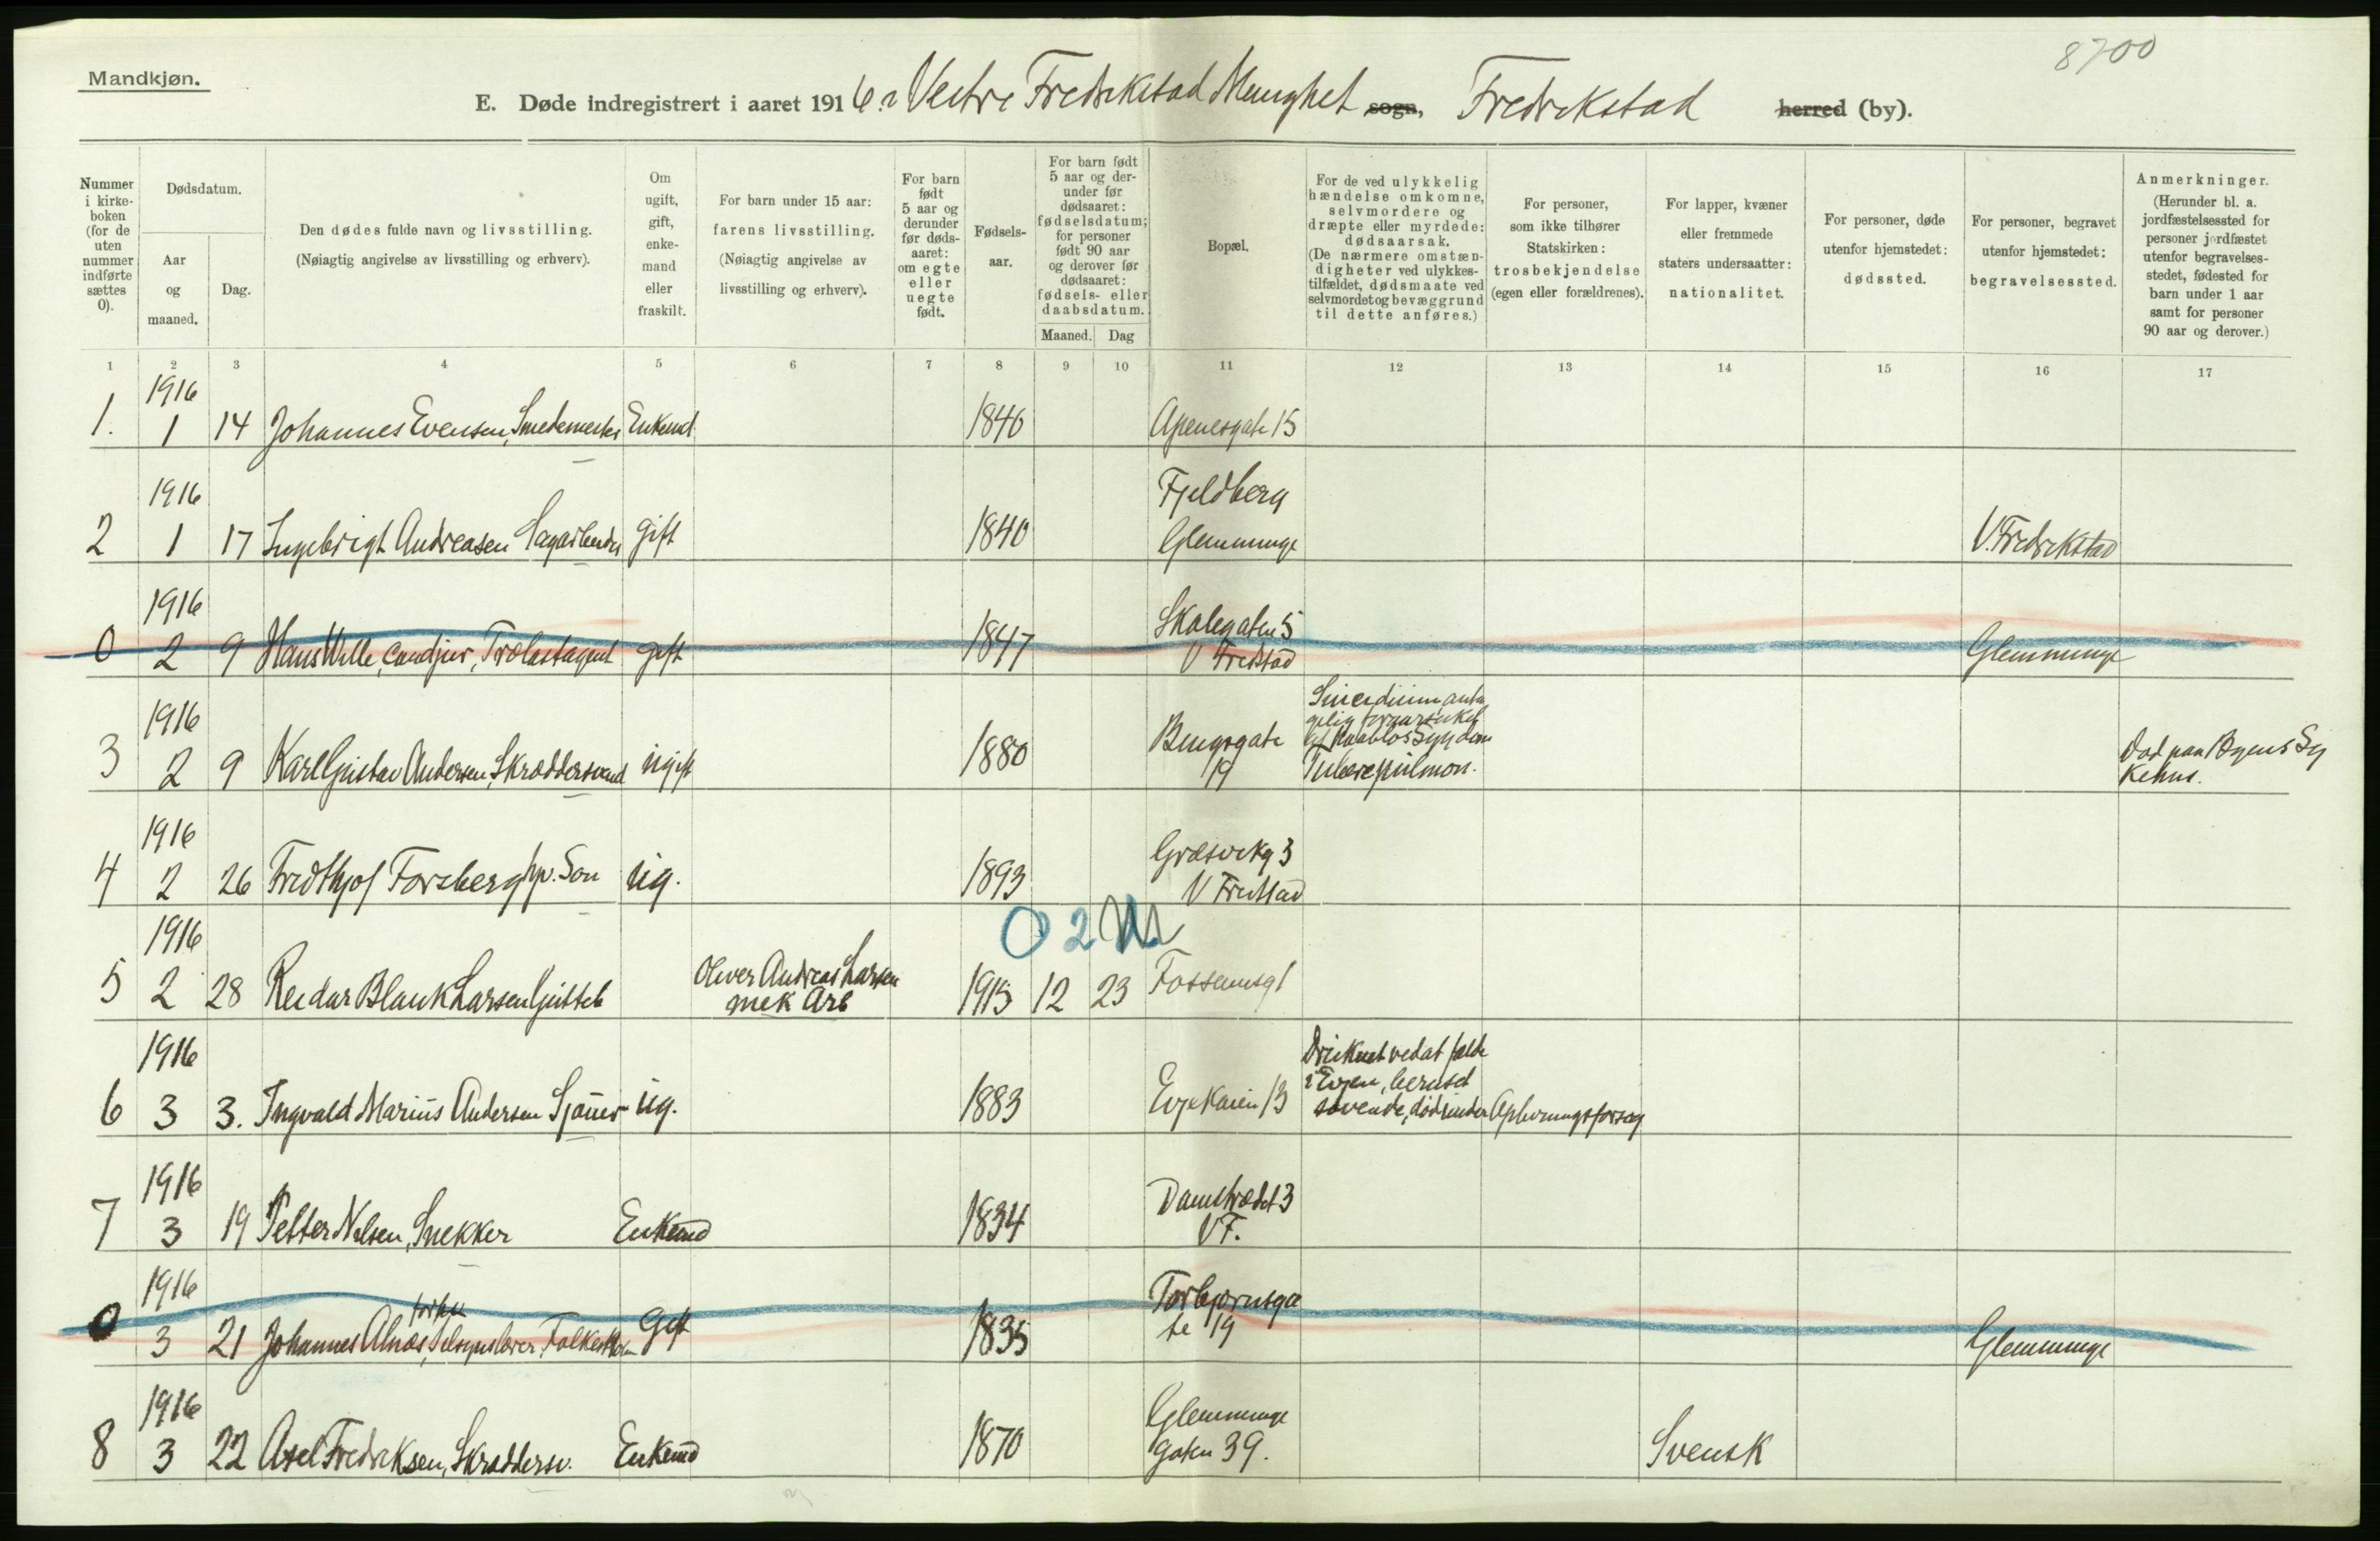 8700
Mandkjøn.
E. Døde indregistrert i aaret 1916 i Vestre Fredrikstad Menighet sogn, Fredrikstad herred (by).
Nummer i kirke-boken (for de uten nummer indførte sættes 0).
Dødsdatum.
Aar og maaned.
Dag.
Den dødes fulde navn og livsstilling.
(Nøiagtig angivelse av livsstilling og erhverv).
Om ugift, gift, enke-mand eller fraskilt.
For barn under 15 aar:
farens livsstilling.
(Nøiagtig angivelse av livsstilling og erhverv).
For barn født 5 aar og derunder før døds-aaret: om egte eller uegte født.
Fødsels-aar.
For barn født 5 aar og der-under før dødsaaret: fødselsdatum; for personer født 90 aar og derover før dødsaaret: fødsels- eller daabsdatum.
Maaned. Dag
Bopæl.
For de ved ulykkelig hændelse omkomne, selvmordere og dræpte eller myrdede: dødsaarsak.
(De nærmere omstæn-digheter ved ulykkes-tilfældet, dødsmaate ved selvmordet og bevæggrund til dette anføres.)
For personer, som ikke tilhører Statskirken: trosbekjendelse (egen eller forældrenes).
For lapper, kvæner eller fremmede staters undersaatter: nationalitet.
For personer, døde utenfor hjemstedet: dødssted.
For personer, begravet utenfor hjemstedet: begravelsessted.
Anmerkninger.
(Herunder bl. a. jordfæstelsessted for personer jordfæstet utenfor begravelses-stedet, fødested for barn under 1 aar samt for personer 90 aar og derover.)
1 2 3 4 5 6 7 8 9 10 11 12 13 14 15 16 17
1916
1. 1 14 Johannes Evensen, Smedemester Enkemd 1846 Apenesgate 15
1916 Fjeldberg
2 1 17 Ingebrigt Andreasen Sagarbeider gift 1840 Glemminge V. Fredrikstad
1916 Skolegaten 5
0 2 9 Hans Wille, cand jur, Trælastagent gift 1847 V Frdstad Glemminge
1916
3 2 9 Karl Gustav Andersen, Skræddersvend ugift 1880 19 Tuberc pulmon. Død paa Byens Sy
kehus.
1916 Græsvikg 3
4 2 26 Fridthjof Forsberg hv. Søn ug. 1893 V Frdstad
O 2 M
1916 Oliver Andreas Larsen
5 2 28 Reidar Blank Larsen mek Arb 1915 12 23
1916 Druknet ved at falde
i Evjen, beruset
6 3 3. Ingvald Marius Andersen Sjømr ug. 1883 Evjekaien 13 sovende, død under Oplivningsforsøg
1916 Damstrædet 3
7 3 19 Petter Nilsen, Snekker Enkemd 1834 V F.
1916 forhv Torbjørnsga
0 3 21 Johannes Alnæs, Gift 1835 te 19 Glemminge
1916 Glemminge
8 3 22 Axel Fredriksen, Skræddersv. Enkemd 1870 gaten 39. Svensk